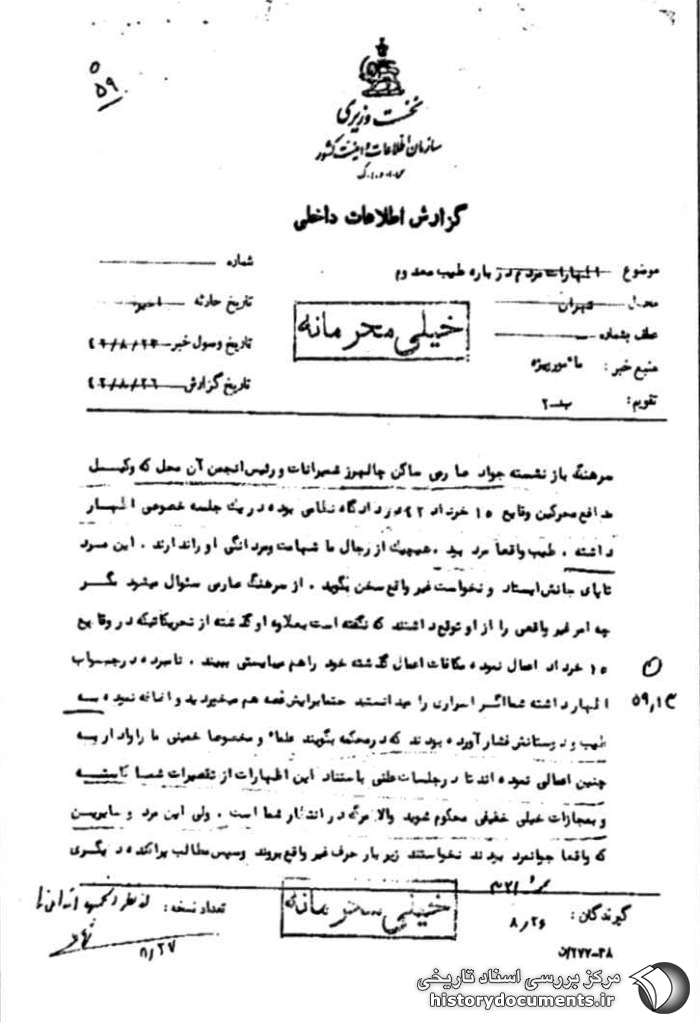 ۵۹
نخست وزیری
سازمان اطلاعات و امنیت کشور
س.ا.و.ا.ک
گزارش اطلاعات داخلی
موضوع اظهارات مردم درباره طیب معدوم
شماره
محل تهران
تاریخ حادثه اخیر
خیلی محرمانه
عطف بشماره
تاریخ وصول خبر ۴۲/۸/۲۳
منبع خبر: مأمور ویژه
تاریخ گزارش ۴۲/۸/۲۶
تقویم: ب-۲
سرهنگ باز نشسته جواد صارمی ساکن چالهرز شمیرانات و رئیس انجمن آن محل که وکیل
مدافع محرکین وقایع ۱۵ خرداد ۴۲ در دادگاه نظامی بوده در یک جلسه خصوصی اظهار
داشته . طیب واقعا مرد بود . هیچیک از رجال ما شهامت و مردانگی او را ندارند . این مرد
تا پای جانش ایستاد و نخواست غیر واقع سخن بگوید . از سرهنگ صارمی سئوال میشود مگر
چه امر غیر واقعی را از او توقع داشتند که نگفته است بعلاوه او گذشته از تحریکاتیکه در وقایع
۱۵ خرداد اعمال نموده مکافات اعمال گذشته خود را هم میبایستی ببیند . نامبرده در جواب
اظهار داشته شما اگر اسراری را میدانستید حتما برایش غصه هم میخوردید و اضافه نموده به
طیب و دوستانش فشار آورده بودند که در محکمه بگویند علماء و مخصوصا خمینی ما را وادار به
چنین اعمالی نموده اند تا در جلسات علنی با ستناد این اظهارات از تقصیرات شما کاسته
و بمجازات خیلی خفیفی محکوم شوید والا مرگ در انتظار شما است . ولی این مرد و سایرین
که واقعا جوانمرد بودند نخواستند زیر بار حرف غیر واقع بروند وسپس مطالب پراکنده دیگری
۵۹٫۱۳
گیرندگان:
۸/۲۶
خیلی محرمانه
تعداد نسخه:
۸/۲۷
۳۸-۲۷۷/ن
مرکز بررسی اسناد تاریخی
historydocuments.ir